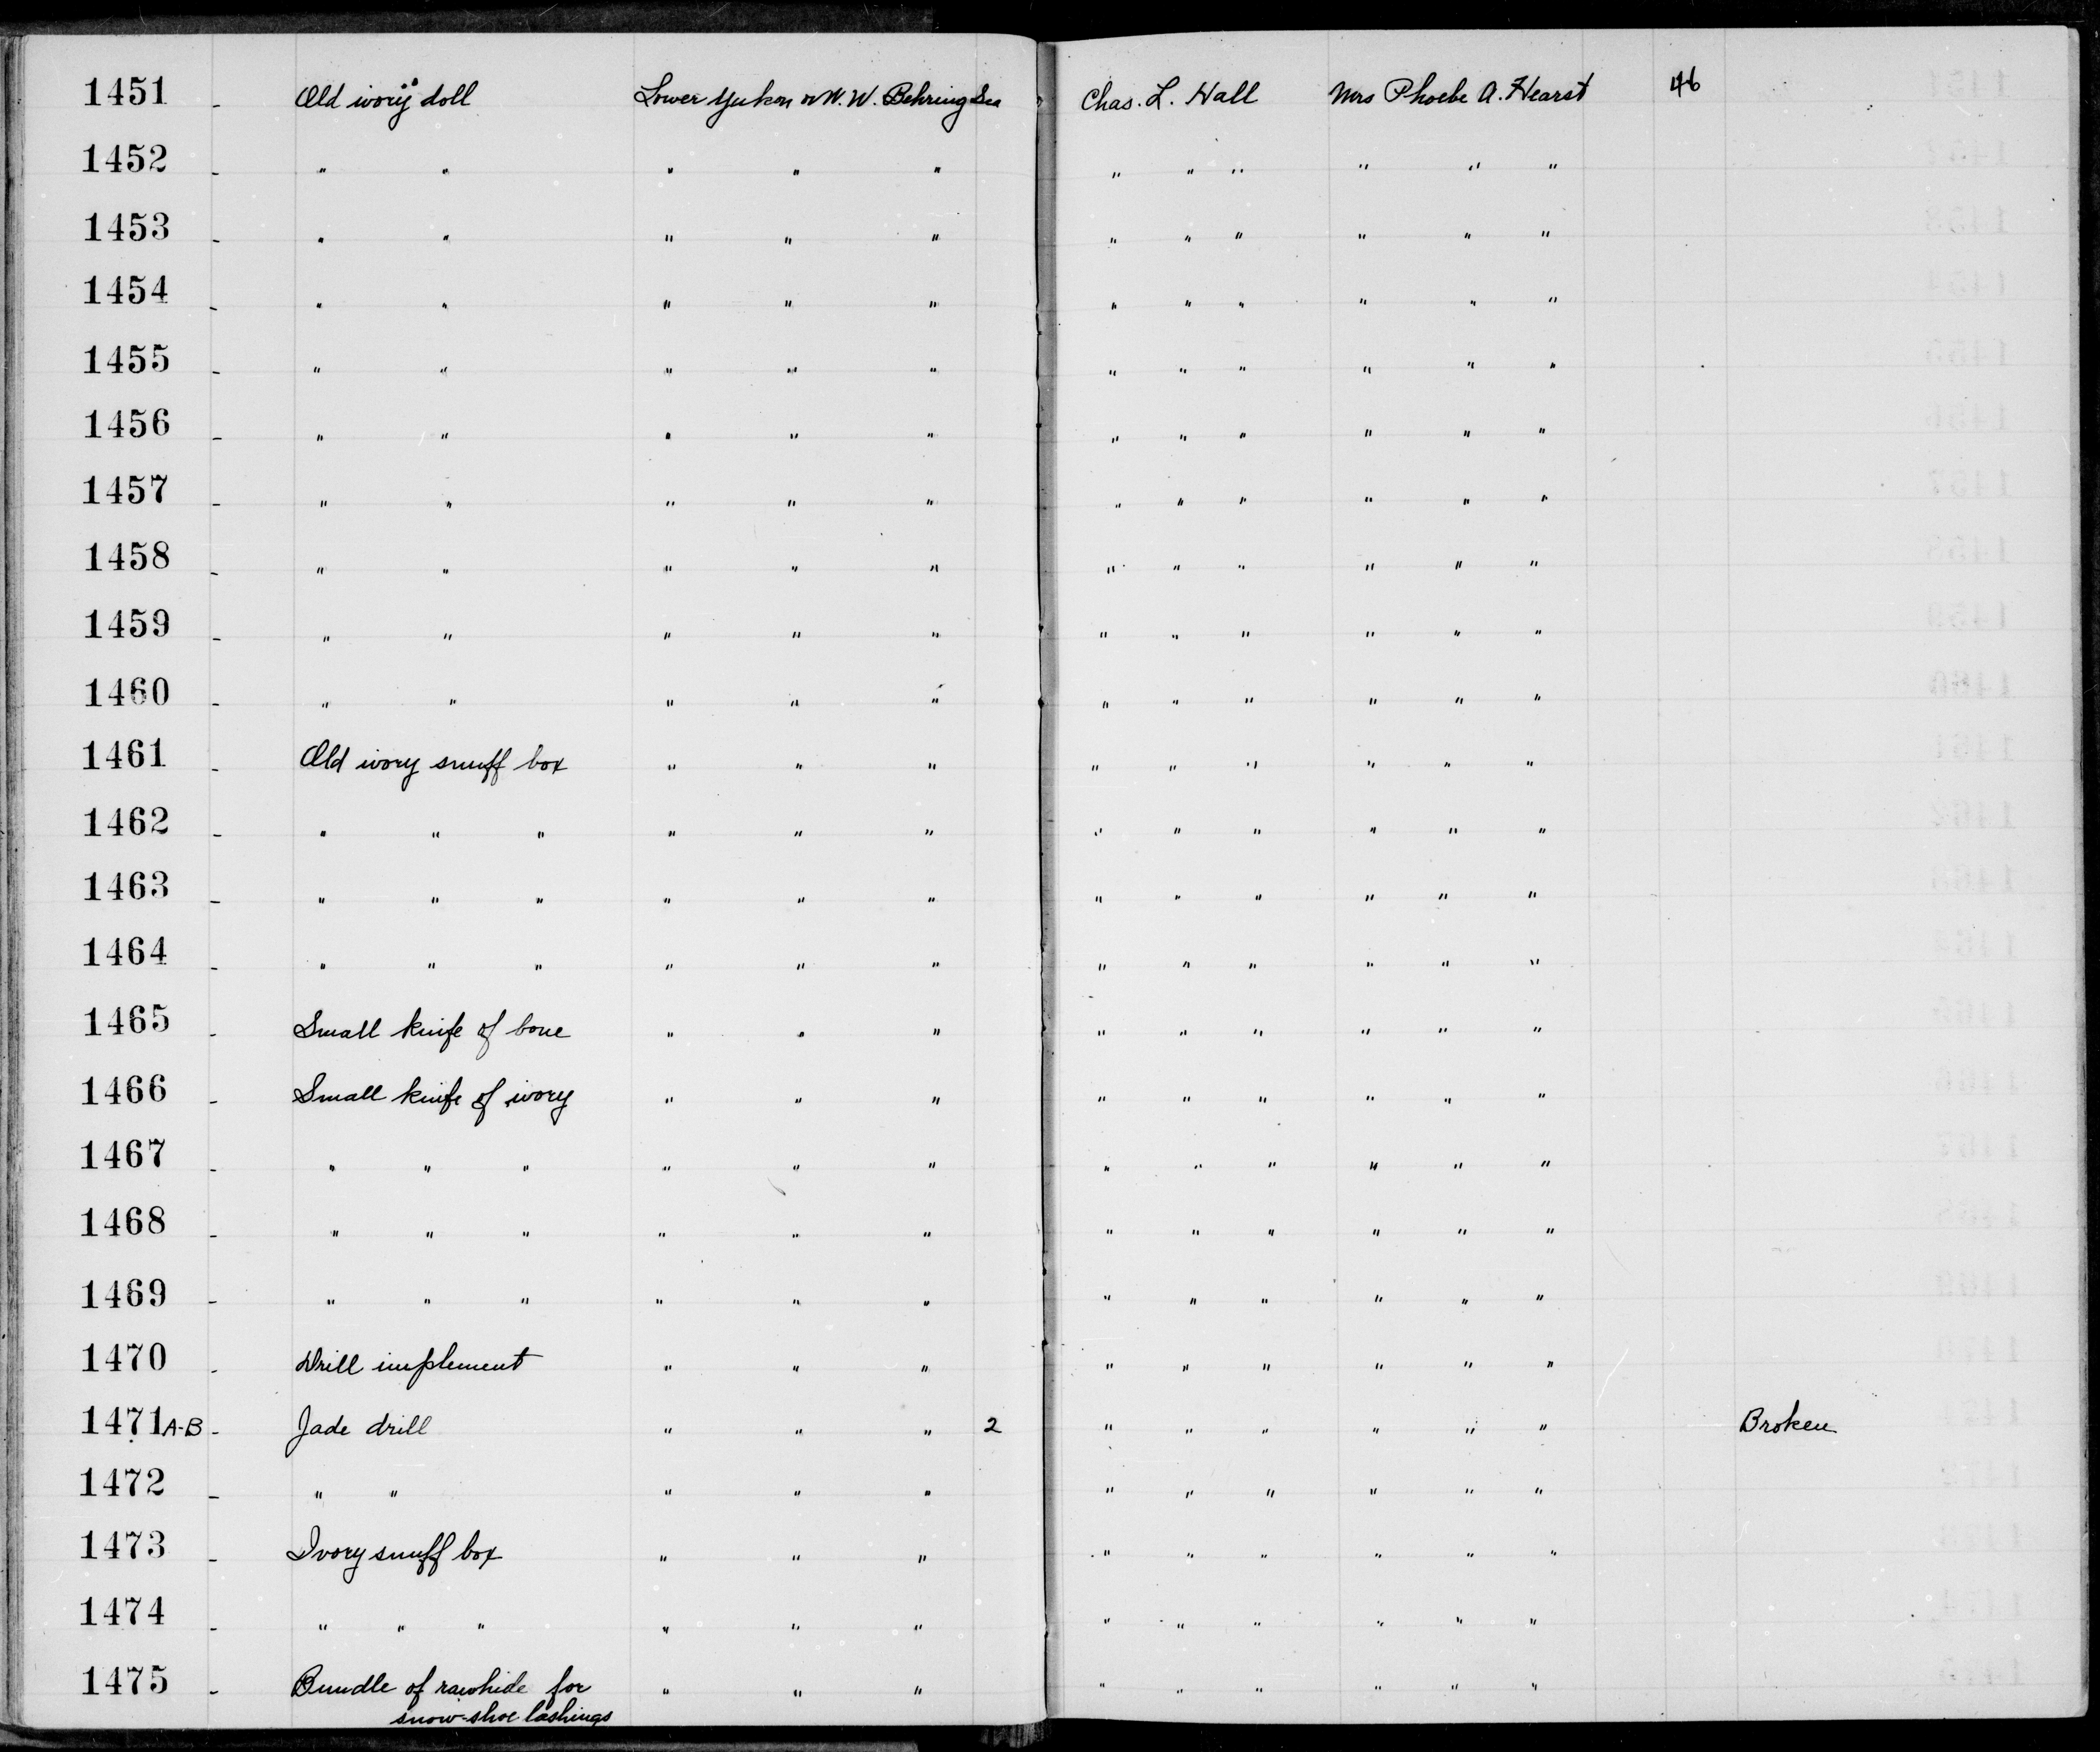 1451 - Old ivory doll Lower Yukon or N. W. Behring Sea Chas. L. Hall Mrs Phoebe A. Hearst 46
1452 - " " " " " " " " " " "
1453 - " " " " " " " " " " "
1454 - " " " " " " " " " " "
1455 - " " " " " " " " " " "
1456 - " " " " " " " " " " "
1457 - " " " " " " " " " " "
1458 - " " " " " " " " " " "
1459 - " " " " " " " " " " "
1460 - " " " " " " " " " " "
1461 - Old ivory snuff box " " " " " " " " "
1462 - " " " " " " " " " " " "
1463 - " " " " " " " " " " " "
1464 - " " " " " " " " " " " "
1465 - Small knife of bone " " " " " " " " "
1466 - Small knife of ivory " " " " " " " " "
1467 - " " " " " " " " " " " "
1468 - " " " " " " " " " " " "
1469 - " " " " " " " " " " " "
1470 - Drill implement " " " " " " " " "
1471 A-B - Jade drill " " " 2 " " " " " " Broken
1472 - " " " " " " " " " " "
1473 - Ivory snuff box " " " " " " " " "
1474 - " " " " " " " " " " " "
1475 - Bundle of rawhide for " " " " " " " " "
snow-shoe lashings